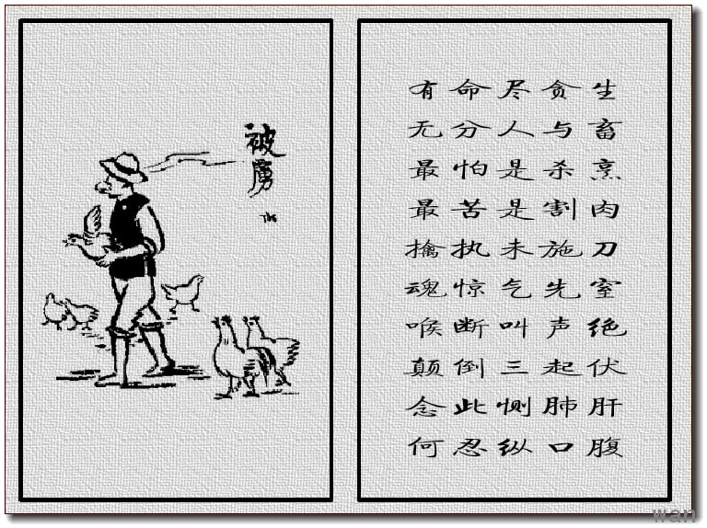 被虜
TK
有命尽贪生
无分人与畜
最怕是杀烹
最苦是割肉
擒执未施刀
魂惊气先窒
喉断叫声绝
颠倒三起伏
念此恻肺肝
何忍纵口腹
wan